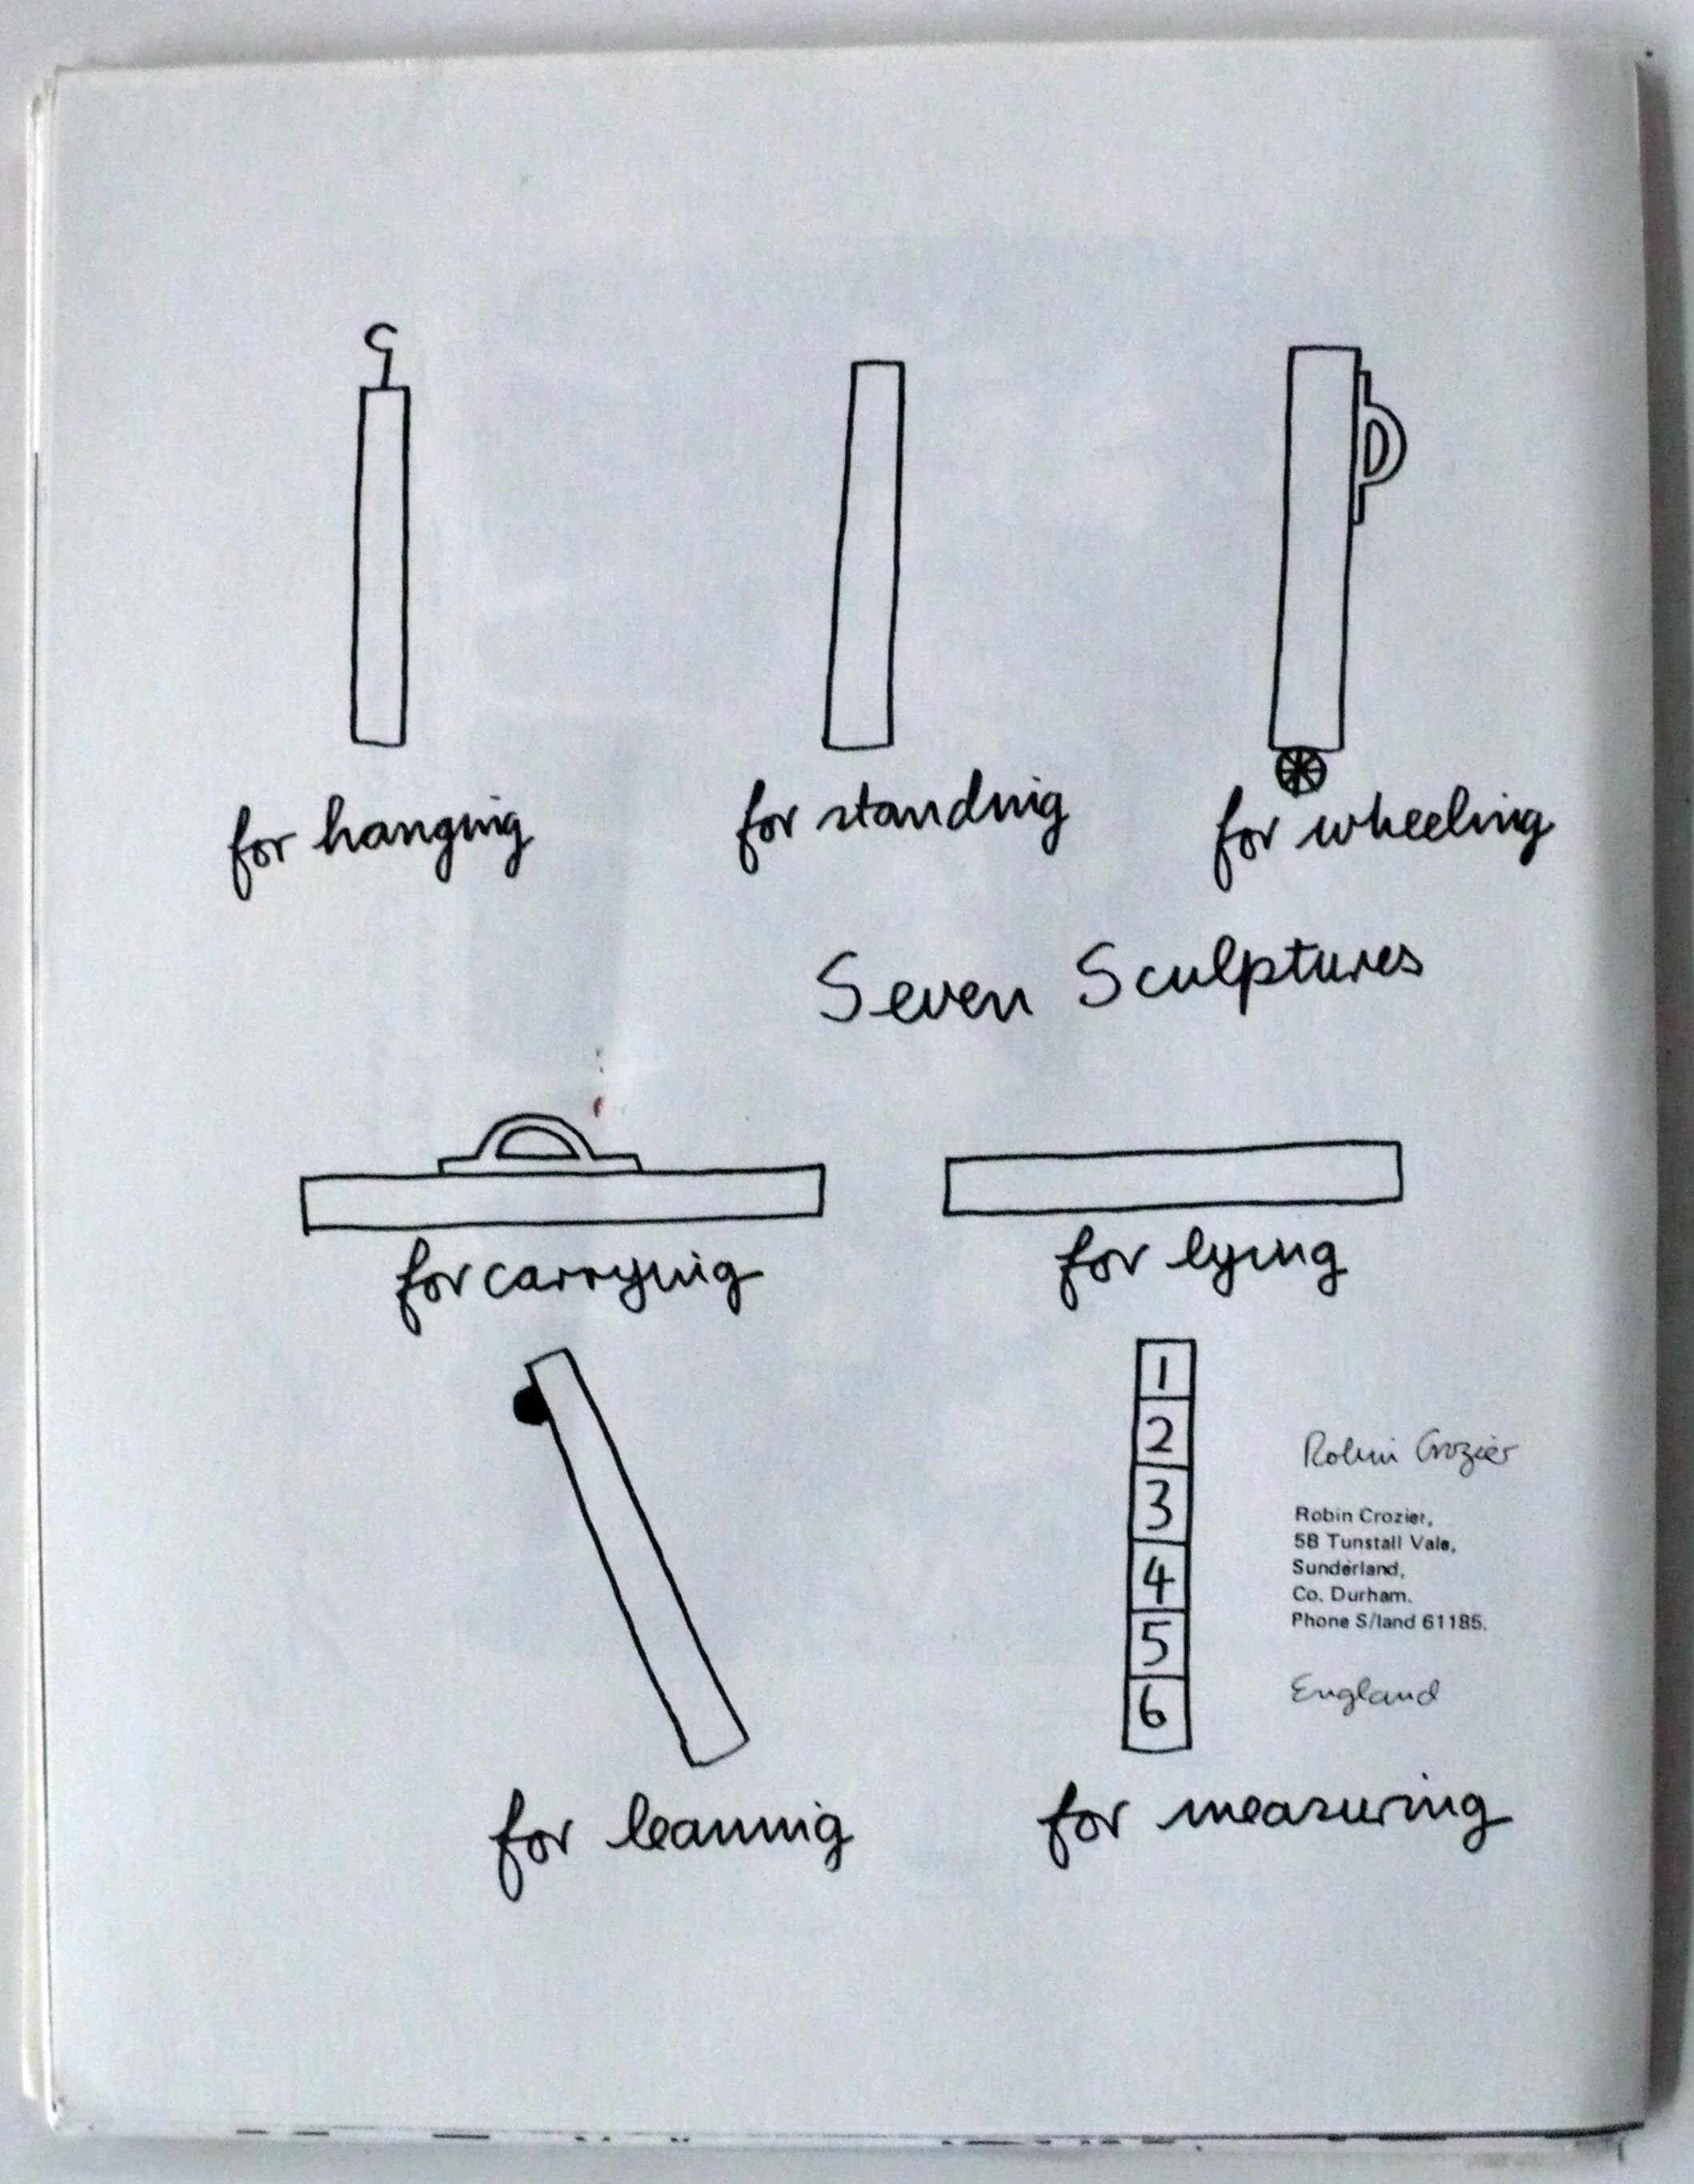 for hanging
for standing
for wheeling
Seven Sculptures
for carrying
for lying
1
2
3
4
5
6
Robin Crozier
Robin Crozier,
5B Tunstall Vale,
Sunderland,
Co. Durham.
Phone S/land 61185.
England
for leaning
for measuring